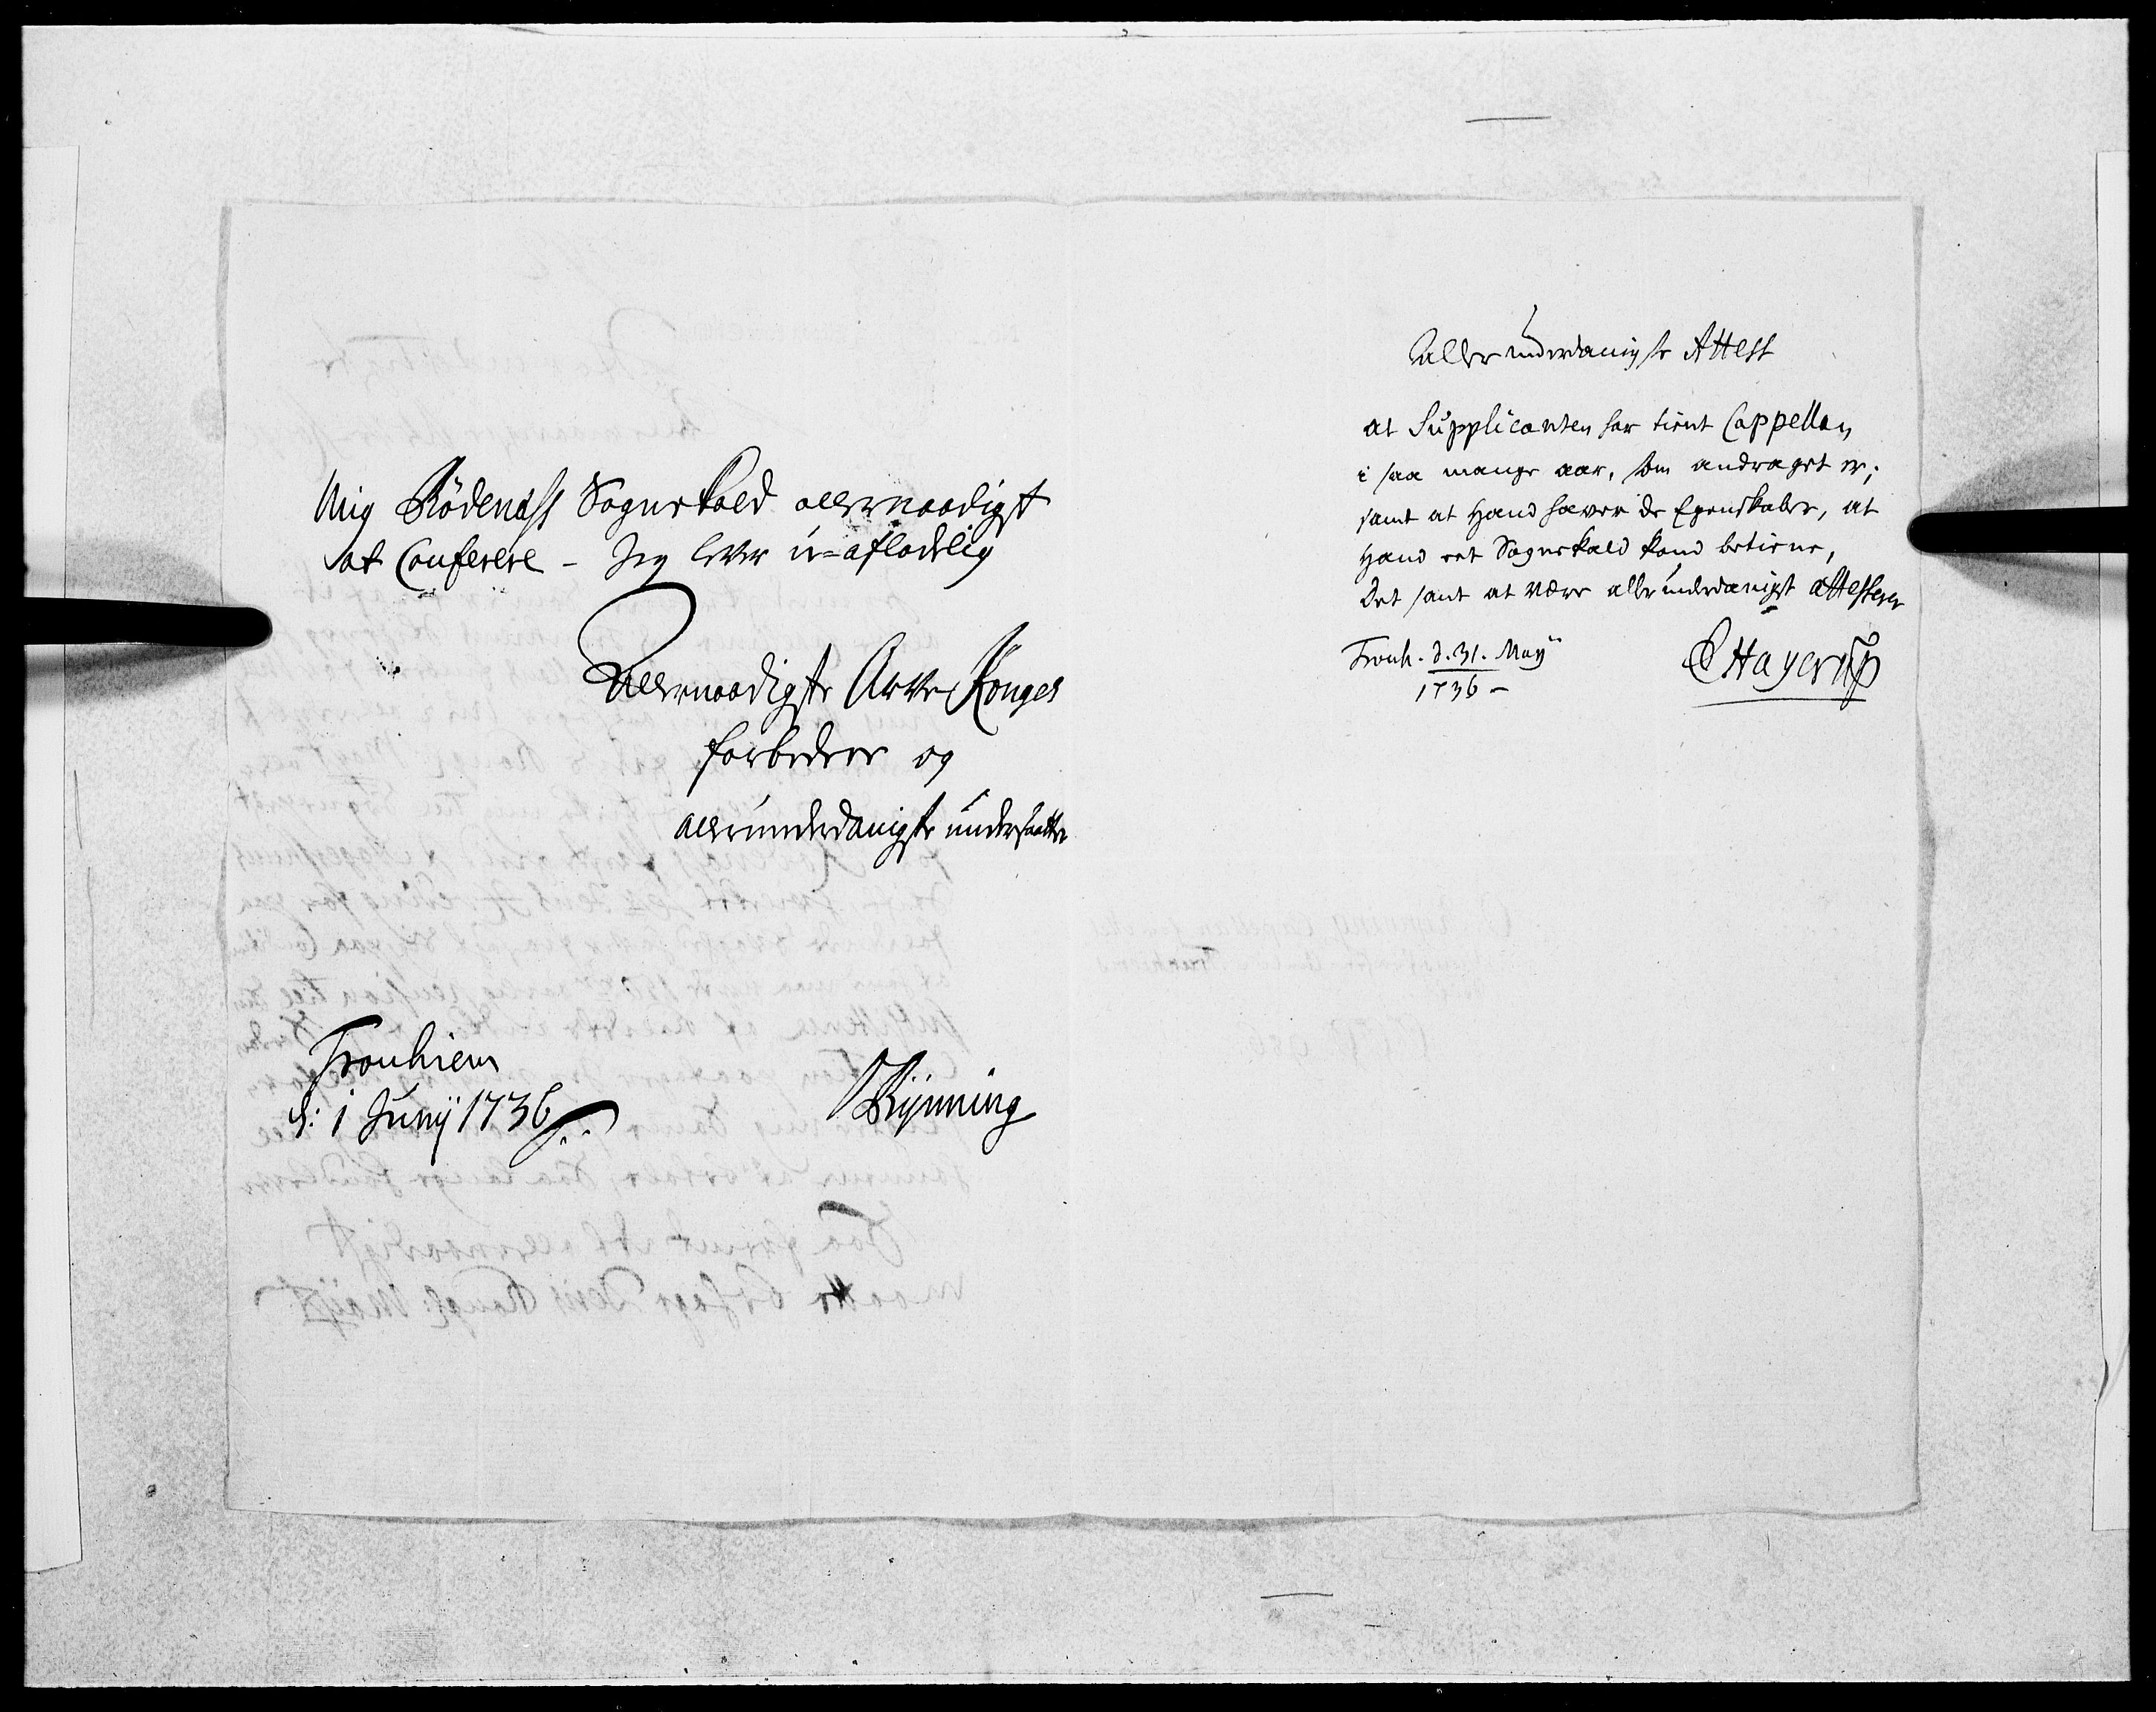 Mig Rödenæss Sognekald allernaadigst
at Conferere - Jeg lever u=afladelig
Allernaadigste Arve Konges
forbedere og
allerunderdanigste undersaatte
Tronhiem
d: 1 Junij 1736
Rÿnning
Allerunderdanigste Attest
at Supplicanten har tient Cappellan
i saa mange aar, som andraget er;
samt at Hand haver de Egenskaber, at
Hand eet Sognekald kand betiene,
Det sant at være allerunderdanigst attesterer
Tronh. d. 31. Maÿ
1736 -
E Hagerup